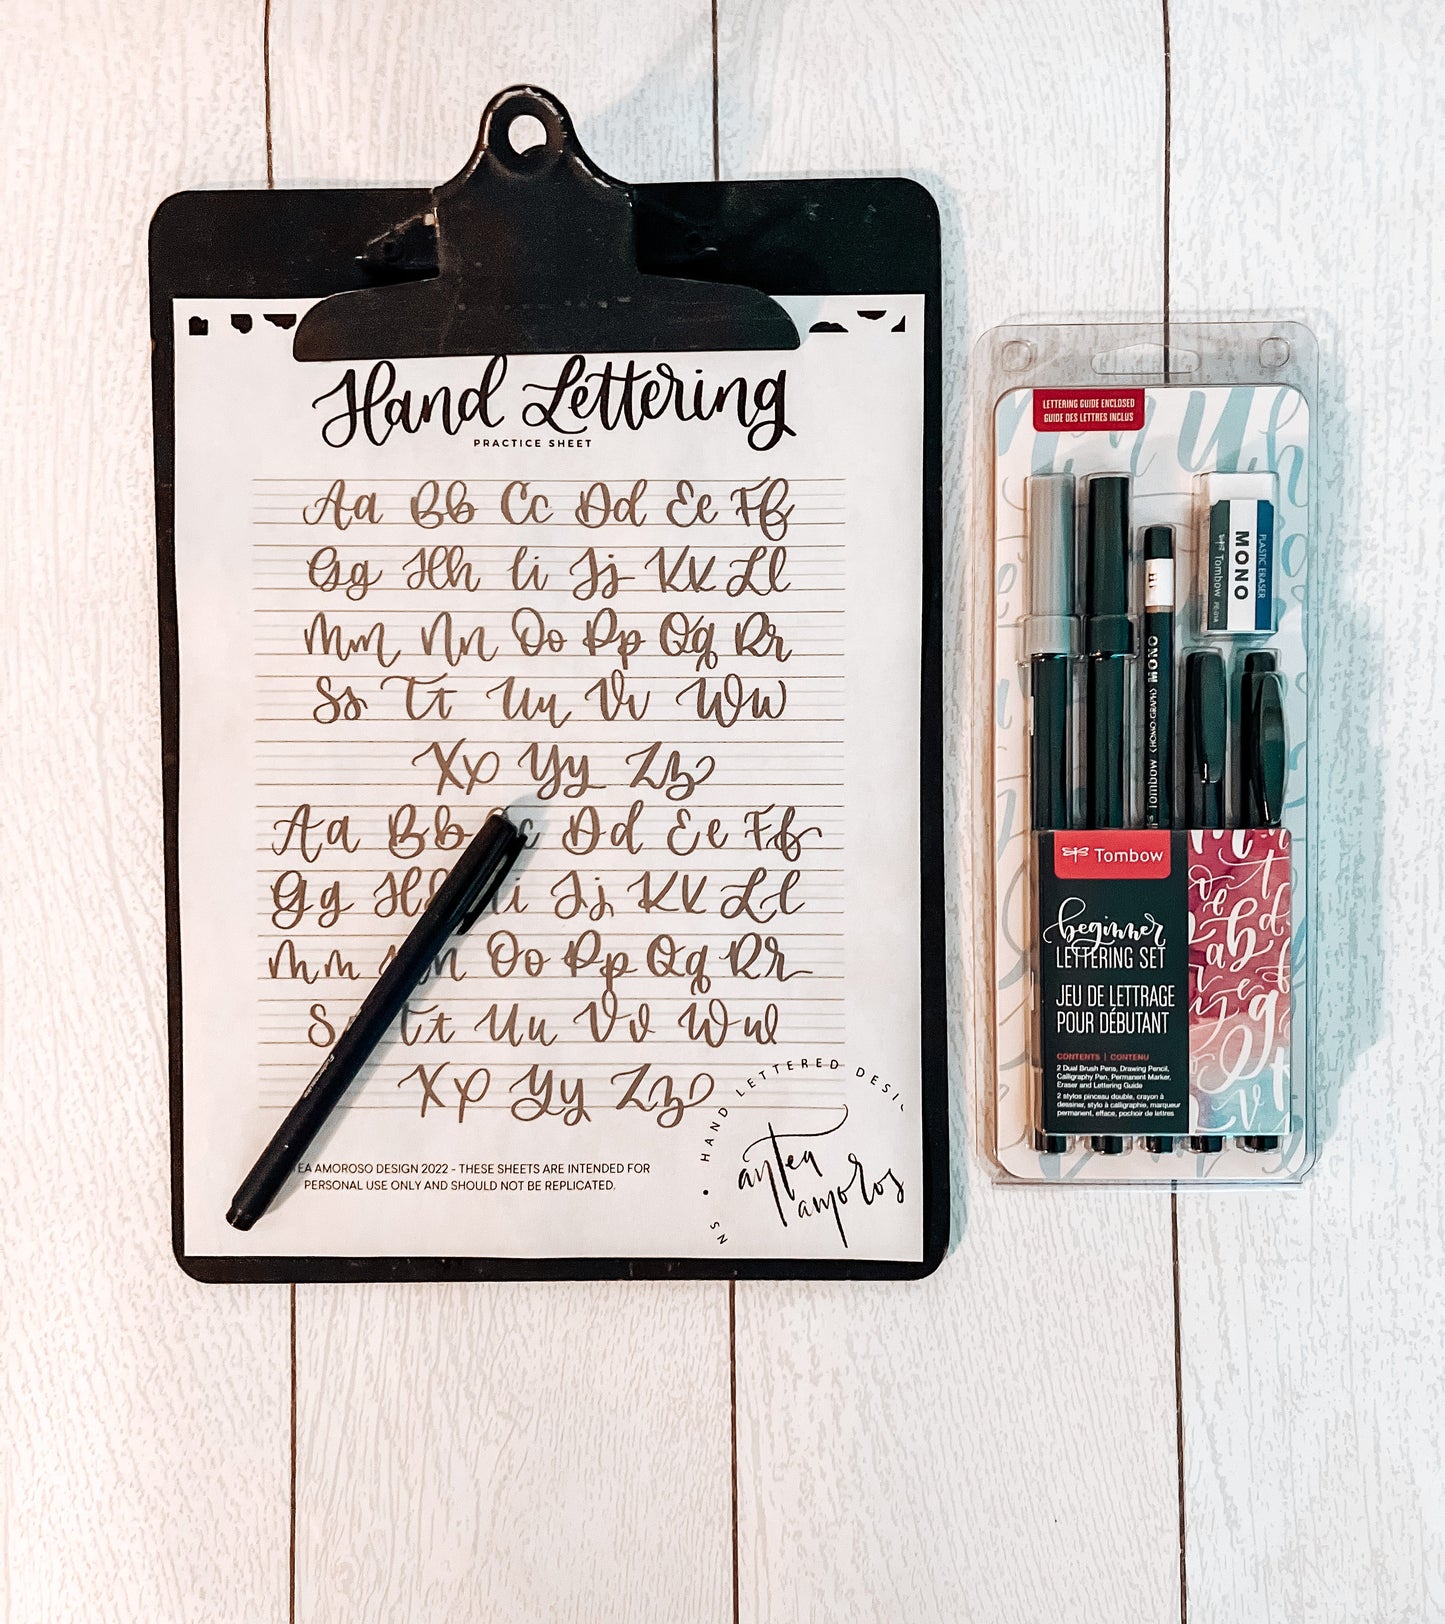 Hand Lettering
PRACTICE SHEET
Aa Bb Cc Dd Ee Ff
Gg Hh Ii Jj Kk Ll
Mm Nn Oo Pp Qq Rr
Ss Tt Uu Vv Ww
Xx Yy Zz
Aa Bb c Dd Ee Ff
Gg H i Jj Kk Ll
Mm n Oo Pp Qq Rr
S Tt Uu Vv Ww
Xx Yy Zz
AMOROSO DESIGN 2022 - THESE SHEETS ARE INTENDED FOR
PERSONAL USE ONLY AND SHOULD NOT BE REPLICATED.
HAND LETTERED DESIGNS
antea
amoroso
LETTERING GUIDE ENCLOSED
GUIDE DES LETTRES INCLUS
MONO
PLASTIC ERASER
Tombow
Tombow MONO
Tombow
beginner
LETTERING SET
JEU DE LETTRAGE
POUR DÉBUTANT
CONTENTS | CONTENU
2 Dual Brush Pens, Drawing Pencil,
Calligraphy Pen, Permanent Marker,
Eraser and Lettering Guide
2 stylos pinceau double, crayon à
dessiner, stylo à calligraphie, marqueur
permanent, efface, pochoir de lettres